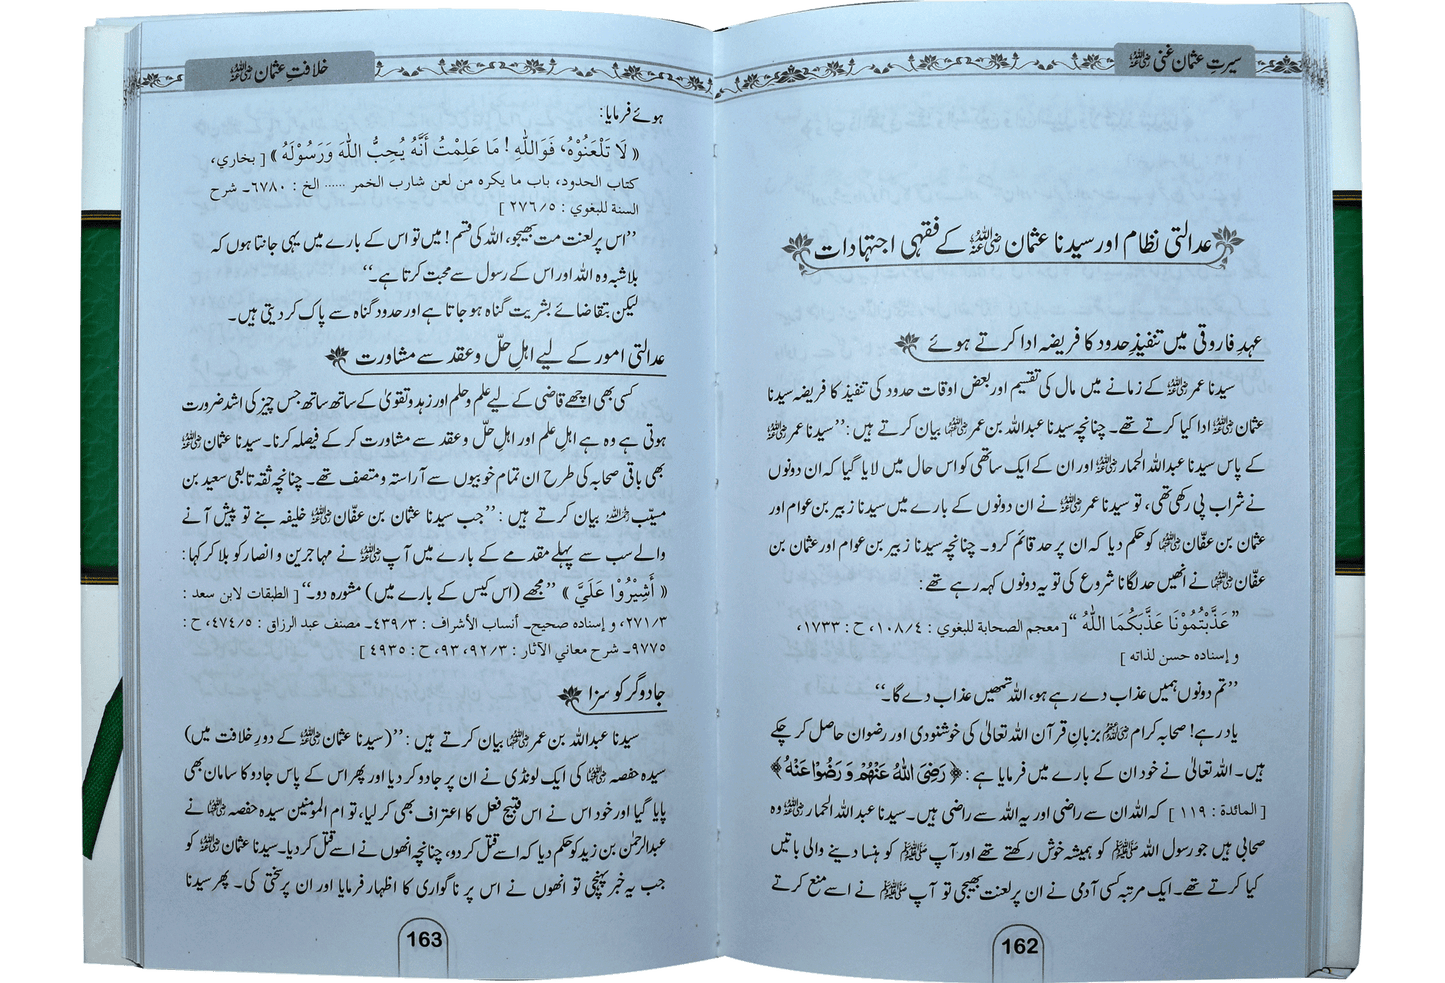 سیرتِ عثمان غنی رضی اللہ عنہ
عدالتی نظام اور سیدنا عثمان رضی اللہ عنہ کے فقہی اجتہادات
عہدِ فاروقی میں تنفیذِ حدود کا فریضہ ادا کرتے ہوئے
سیدنا عمر رضی اللہ عنہ کے زمانے میں مال کی تقسیم اور بعض اوقات حدود کی تنفیذ کا فریضہ سیدنا
عثمان رضی اللہ عنہ ادا کیا کرتے تھے۔ چنانچہ سیدنا عبداللہ بن عمر رضی اللہ عنہما بیان کرتے ہیں: ’’سیدنا عمر رضی اللہ عنہ
کے پاس سیدنا عبداللہ الحمار رضی اللہ عنہ اور ان کے ایک ساتھی کو اس حال میں لایا گیا کہ ان دونوں
نے شراب پی رکھی تھی، تو سیدنا عمر رضی اللہ عنہ نے ان دونوں کے بارے میں سیدنا زبیر بن عوام اور
عثمان بن عفّان رضی اللہ عنہما کو حکم دیا کہ ان پر حد قائم کرو۔ چنانچہ سیدنا زبیر بن عوام اور عثمان بن
عفّان رضی اللہ عنہما نے انھیں حد لگانا شروع کی تو یہ دونوں کہہ رہے تھے:
”عَذَّبْتُمُوْنَا عَذَّبَكُمَا اللّٰهُ“ [معجم الصحابة للبغوي : ١٠٨/٤، ح : ١٧٣٣،
و إسناده حسن لذاته ]
’’تم دونوں ہمیں عذاب دے رہے ہو، اللہ تمھیں عذاب دے گا۔‘‘
یاد رہے! صحابہ کرام رضی اللہ عنہم بزبانِ قرآن اللہ تعالیٰ کی خوشنودی اور رضوان حاصل کر چکے
ہیں۔ اللہ تعالیٰ نے خود ان کے بارے میں فرمایا ہے: ﴿ رَضِىَ اللّٰهُ عَنْهُمْ وَ رَضُوْا عَنْهُ ﴾
[ المائدة : ١١٩ ] کہ اللہ ان سے راضی اور یہ اللہ سے راضی ہیں۔ سیدنا عبداللہ الحمار رضی اللہ عنہ وہ
صحابی ہیں جو رسول اللہ ﷺ کو ہمیشہ خوش رکھتے تھے اور آپ ﷺ کو ہنسا دینے والی باتیں
کیا کرتے تھے۔ ایک مرتبہ کسی آدمی نے ان پر لعنت بھیجی تو آپ ﷺ نے اسے منع کرتے
162
خلافتِ عثمان رضی اللہ عنہ
ہوئے فرمایا:
« لَا تَلْعَنُوْهُ، فَوَاللّٰهِ! مَا عَلِمْتُ أَنَّهُ يُحِبُّ اللّٰهَ وَرَسُوْلَهُ » [ بخاري،
كتاب الحدود، باب ما يكره من لعن شارب الخمر ...... الخ : ٦٧٨٠۔ شرح
السنة للبغوي : ٢٧٦/٥ ]
’’اس پر لعنت مت بھیجو، اللہ کی قسم! میں تو اس کے بارے میں یہی جانتا ہوں کہ
بلاشبہ وہ اللہ اور اس کے رسول سے محبت کرتا ہے۔‘‘
لیکن بتقاضائے بشریت گناہ ہو جاتا ہے اور حدود گناہ سے پاک کر دیتی ہیں۔
عدالتی امور کے لیے اہلِ حلّ و عقد سے مشاورت
کسی بھی اچھے قاضی کے لیے علم و حلم اور زہد و تقویٰ کے ساتھ ساتھ جس چیز کی اشد ضرورت
ہوتی ہے وہ ہے اہلِ علم اور اہلِ حلّ و عقد سے مشاورت کر کے فیصلہ کرنا۔ سیدنا عثمان رضی اللہ عنہ
بھی باقی صحابہ کی طرح ان تمام خوبیوں سے آراستہ و متصف تھے۔ چنانچہ ثقہ تابعی سعید بن
مسیّب رحمہ اللہ بیان کرتے ہیں: ’’جب سیدنا عثمان بن عفّان رضی اللہ عنہ خلیفہ بنے تو پیش آنے
والے سب سے پہلے مقدمے کے بارے میں آپ رضی اللہ عنہ نے مہاجرین و انصار کو بلا کر کہا:
« أَشِيْرُوْا عَلَيَّ » ’’مجھے (اس کیس کے بارے میں) مشورہ دو۔‘‘ [ الطبقات لابن سعد :
٢٧١/٣، و إسناده صحيح۔ أنساب الأشراف : ٤٣٩/٣۔ مصنف عبد الرزاق : ٤٧٤/٥، ح :
٩٧٧٥۔ شرح معاني الآثار : ٩٢/٣، ٩٣، ح : ٤٩٣٥ ]
جادوگر کو سزا
سیدنا عبداللہ بن عمر رضی اللہ عنہما بیان کرتے ہیں: ’’(سیدنا عثمان رضی اللہ عنہ کے دورِ خلافت میں)
سیدہ حفصہ رضی اللہ عنہا کی ایک لونڈی نے ان پر جادو کر دیا اور پھر اس کے پاس جادو کا سامان بھی
پایا گیا اور خود اس نے اس قبیح فعل کا اعتراف بھی کر لیا، تو ام المومنین سیدہ حفصہ رضی اللہ عنہا نے
عبدالرحمٰن بن زید کو حکم دیا کہ اسے قتل کر دو، چنانچہ انھوں نے اسے قتل کر دیا۔ سیدنا عثمان رضی اللہ عنہ کو
جب یہ خبر پہنچی تو انھوں نے اس پر ناگواری کا اظہار فرمایا اور ان پر سختی کی۔ پھر سیدنا
163